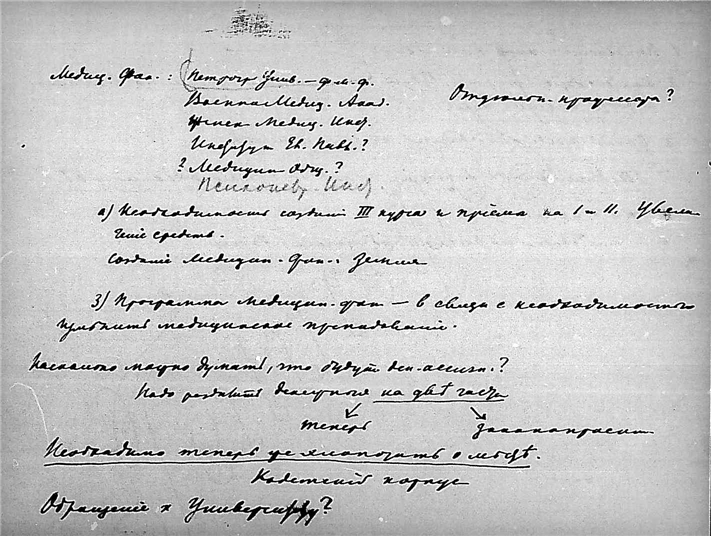 Медиц. Фак.: Петрогр. Унив. — ф. м. ф.
Военно Медиц. Акад.
Женск Медиц. Инст.
Институт Ев. Павл.?
? Медицин. Общ.?
Психоневр. Инст.
Отдельн. профессора?
а) Необходимость создания III курса и приёма на I и II. Увели
чение средств.
Создание Медицин. фак.: Земля
3) Программа Медицин. фак — в связи с необходимостью
медицинское преподавание.
Насколько можно думать, что будут ден. ассигн.?
Надо разбить на двѣ части
теперь
законопроект
Необходимо теперь же хлопотать о мѣстѣ.
Кадетский корпус
Обращение к Университету?